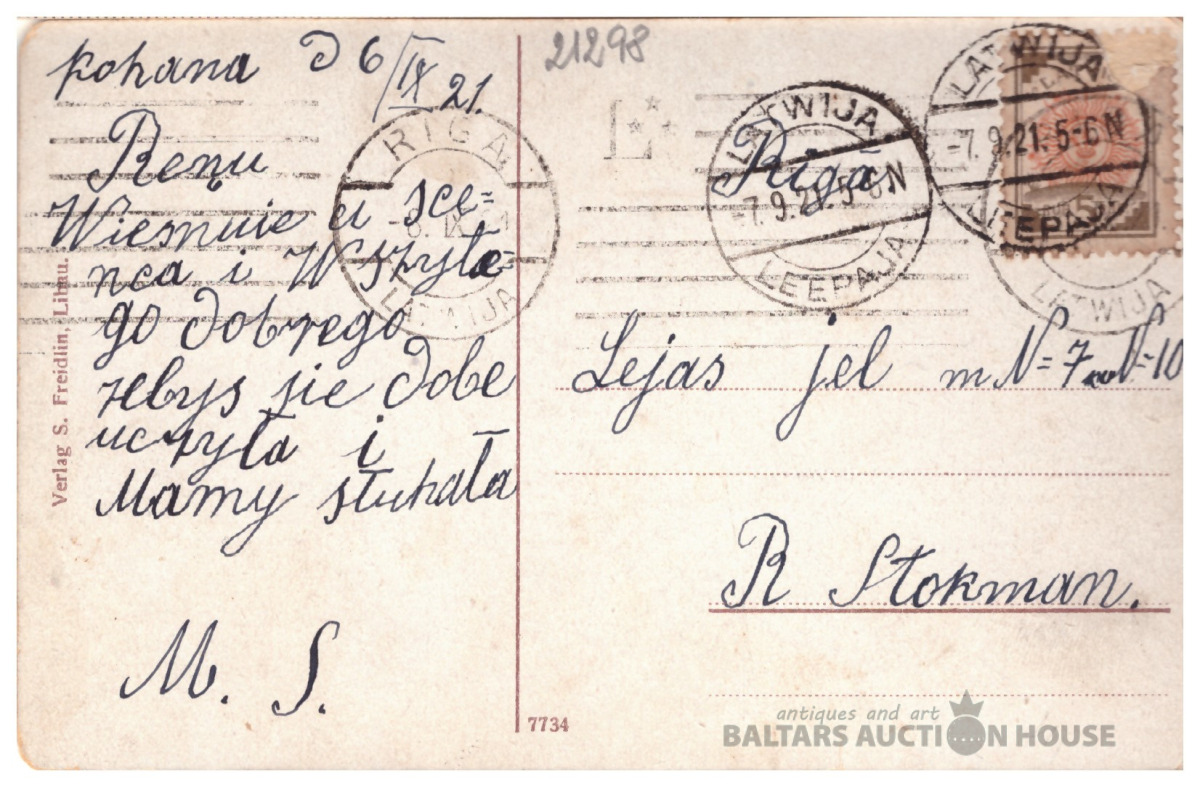 kohana D 6/IX 21.
21298
Renu
Wiesnuie u sce=
nca i Wszyste=
go dobrzego
zebys sie dobe
uczyła i
Mamy słuhała
M. S.
Verlag S. Freidlin, Libau.
7734
RIGA
LATWIJA
LATWIJA
-7.9.21.5-6N
LEEPAJA
LATWIJA
-7.9.21.5-6N
LEEPAJA
LATWIJA
Rigā.
Lejas jel m N=7 N=10
R Stokman.
antiques and art
BALTARS AUCTION HOUSE